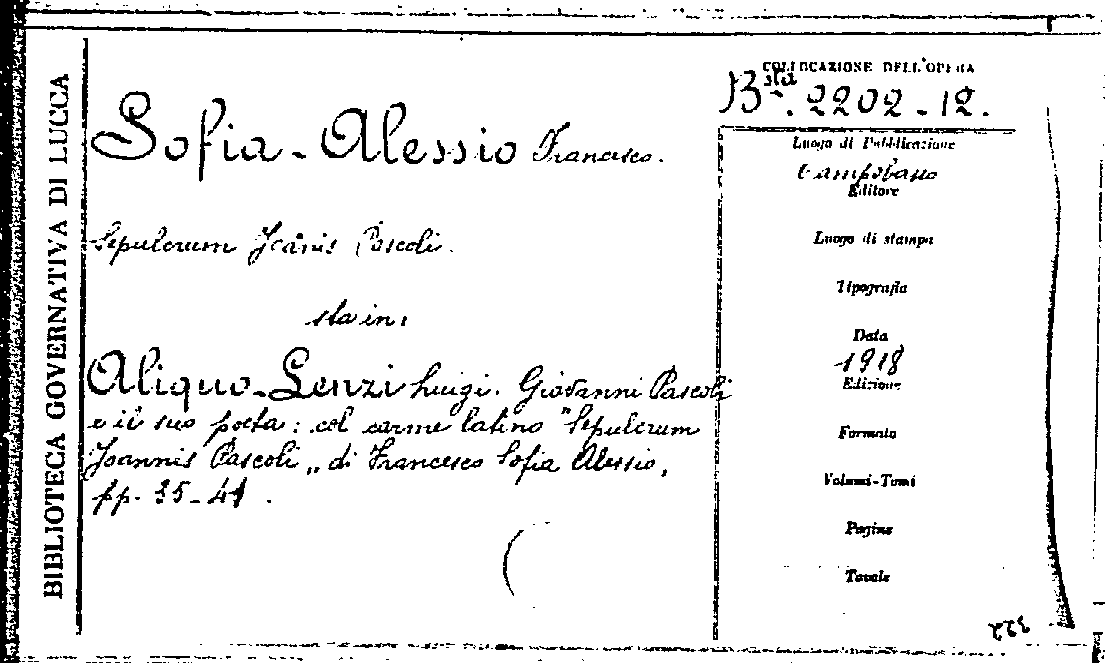 BIBLIOTECA GOVERNATIVA DI LUCCA
Sofia-Alessio Francesco.
Sepulcrum Joanis Pascoli.
sta in:
Aliquo-Lenzi Luigi. Giovanni Pascoli
e il suo poeta: col carme latino "Sepulcrum
Joannis Pascoli„ di Francesco Sofia Alessio,
pp. 35-41.
COLLOCAZIONE DELL'OPERA
Bsta. 2202-12.
Luogo di Pubblicazione
Campobasso
Editore
Luogo di stampa
Tipografia
Data
1918
Edizione
Formato
Volumi-Tomi
Pagine
Tavole
322